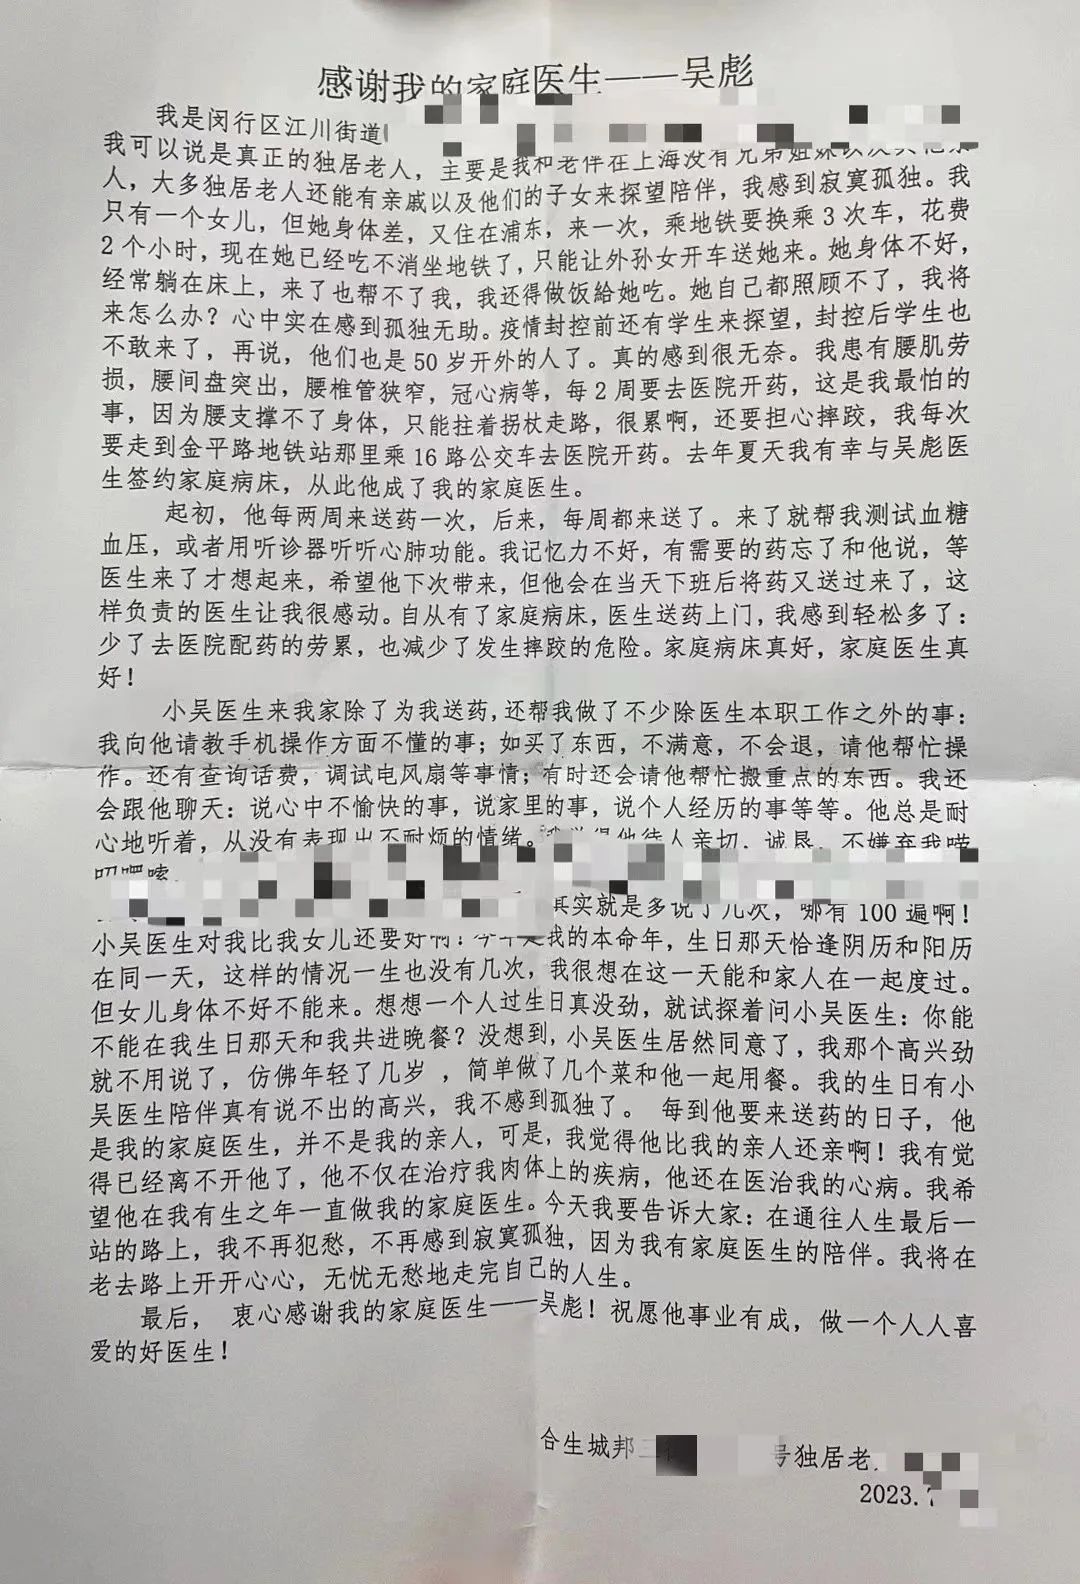 感谢我的家庭医生——吴彪
我是闵行区江川街道
我可以说是真正的独居老人，主要是我和老伴在上海没有兄弟姐妹以及其他亲
人，大多独居老人还能有亲戚以及他们的子女来探望陪伴，我感到寂寞孤独。我
只有一个女儿，但她身体差，又住在浦东，来一次，乘地铁要换乘3次车，花费
2个小时，现在她已经吃不消坐地铁了，只能让外孙女开车送她来。她身体不好，
经常躺在床上，来了也帮不了我，我还得做饭給她吃。她自己都照顾不了，我将
来怎么办？心中实在感到孤独无助。疫情封控前还有学生来探望，封控后学生也
不敢来了，再说，他们也是50岁开外的人了。真的感到很无奈。我患有腰肌劳
损，腰间盘突出，腰椎管狭窄，冠心病等，每2周要去医院开药，这是我最怕的
事，因为腰支撑不了身体，只能拄着拐杖走路，很累啊，还要担心摔跤，我每次
要走到金平路地铁站那里乘16路公交车去医院开药。去年夏天我有幸与吴彪医
生签约家庭病床，从此他成了我的家庭医生。
起初，他每两周来送药一次，后来，每周都来送了。来了就帮我测试血糖
血压，或者用听诊器听听心肺功能。我记忆力不好，有需要的药忘了和他说，等
医生来了才想起来，希望他下次带来，但他会在当天下班后将药又送过来了，这
样负责的医生让我很感动。自从有了家庭病床，医生送药上门，我感到轻松多了：
少了去医院配药的劳累，也减少了发生摔跤的危险。家庭病床真好，家庭医生真
好！
小吴医生来我家除了为我送药,还帮我做了不少除医生本职工作之外的事：
我向他请教手机操作方面不懂的事；如买了东西，不满意，不会退，请他帮忙操
作。还有查询话费，调试电风扇等事情；有时还会请他帮忙搬重点的东西。我还
会跟他聊天：说心中不愉快的事，说家里的事，说个人经历的事等等。他总是耐
心地听着，从没有表现出不耐烦的情绪。我觉得他待人亲切，诚恳，不嫌弃我唠
叨啰嗦
其实就是多说了几次，哪有100遍啊！
小吴医生对我比我女儿还要好啊！今年是我的本命年，生日那天恰逢阴历和阳历
在同一天，这样的情况一生也没有几次，我很想在这一天能和家人在一起度过。
但女儿身体不好不能来。想想一个人过生日真没劲，就试探着问小吴医生：你能
不能在我生日那天和我共进晚餐？没想到，小吴医生居然同意了，我那个高兴劲
就不用说了，仿佛年轻了几岁 ，简单做了几个菜和他一起用餐。我的生日有小
吴医生陪伴真有说不出的高兴，我不感到孤独了。 每到他要来送药的日子，他
是我的家庭医生，并不是我的亲人，可是，我觉得他比我的亲人还亲啊！我有觉
得已经离不开他了，他不仅在治疗我肉体上的疾病，他还在医治我的心病。我希
望他在我有生之年一直做我的家庭医生。今天我要告诉大家：在通往人生最后一
站的路上，我不再犯愁，不再感到寂寞孤独，因为我有家庭医生的陪伴。我将在
老去路上开开心心，无忧无愁地走完自己的人生。
最后， 衷心感谢我的家庭医生——吴彪！祝愿他事业有成，做一个人人喜
爱的好医生！
合生城邦 号独居老
2023.